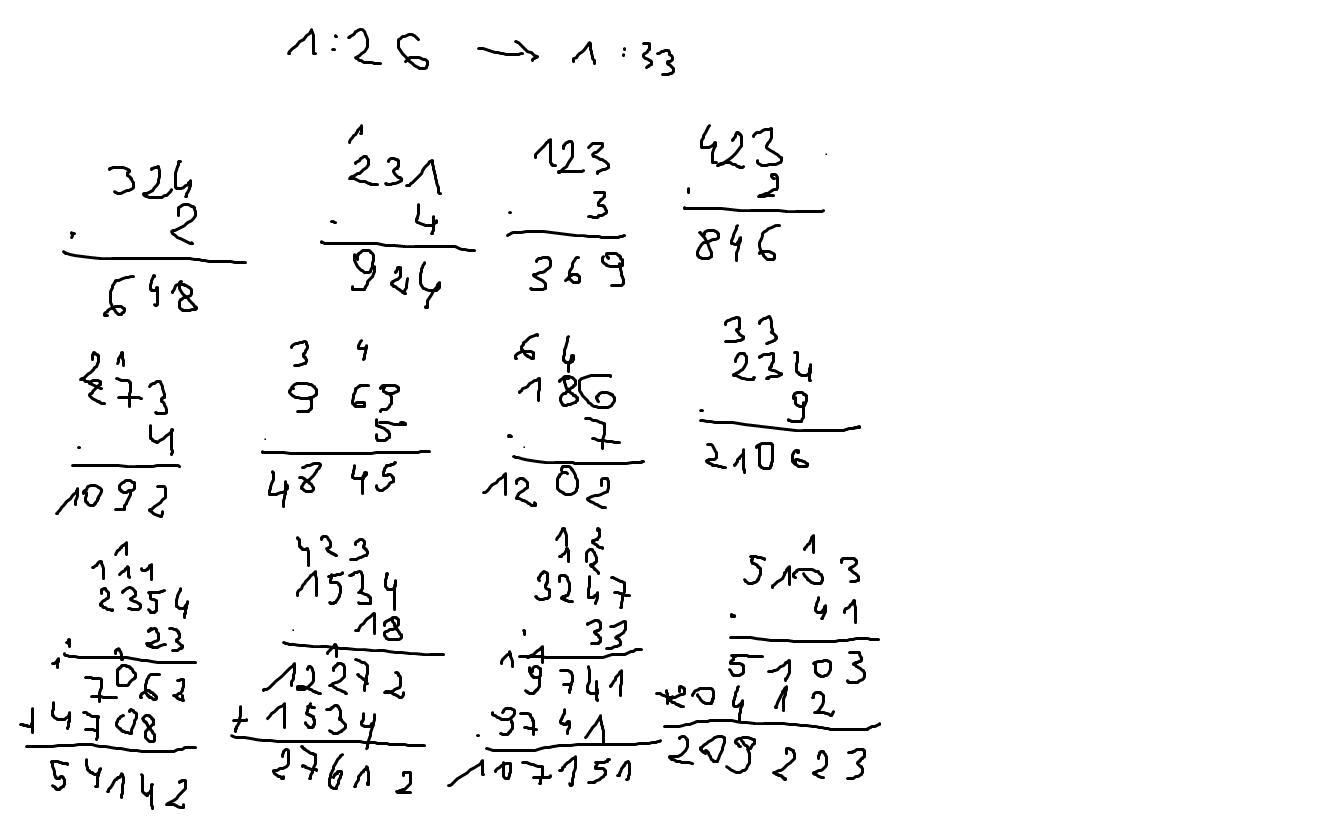 1:26 → 1:33
324
. 2
648
1
231
. 4
924
123
. 3
369
423
. 2
846
2 1
273
. 4
1092
3 4
9 69
. 5
48 45
6 4
186
. 7
1202
33
234
. 9
2106
1
111
2354
. 23
1 1
7062
+ 4708
54142
423
1534
. 18
1
12272
+ 1534
27612
1 2
1 2
3247
. 33
1 1
9741
. 9741
107151
1
5103
. 41
5103
+20412
209223